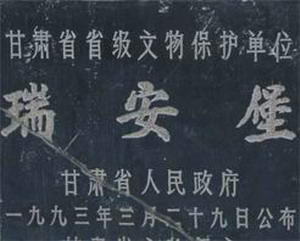 甘肃省省级文物保护单位
瑞安堡
甘肃省人民政府
一九九三年三月二十九日公布